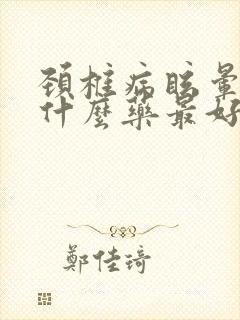 頚椎病眩暈
什麼藥最好
鄭佳琦